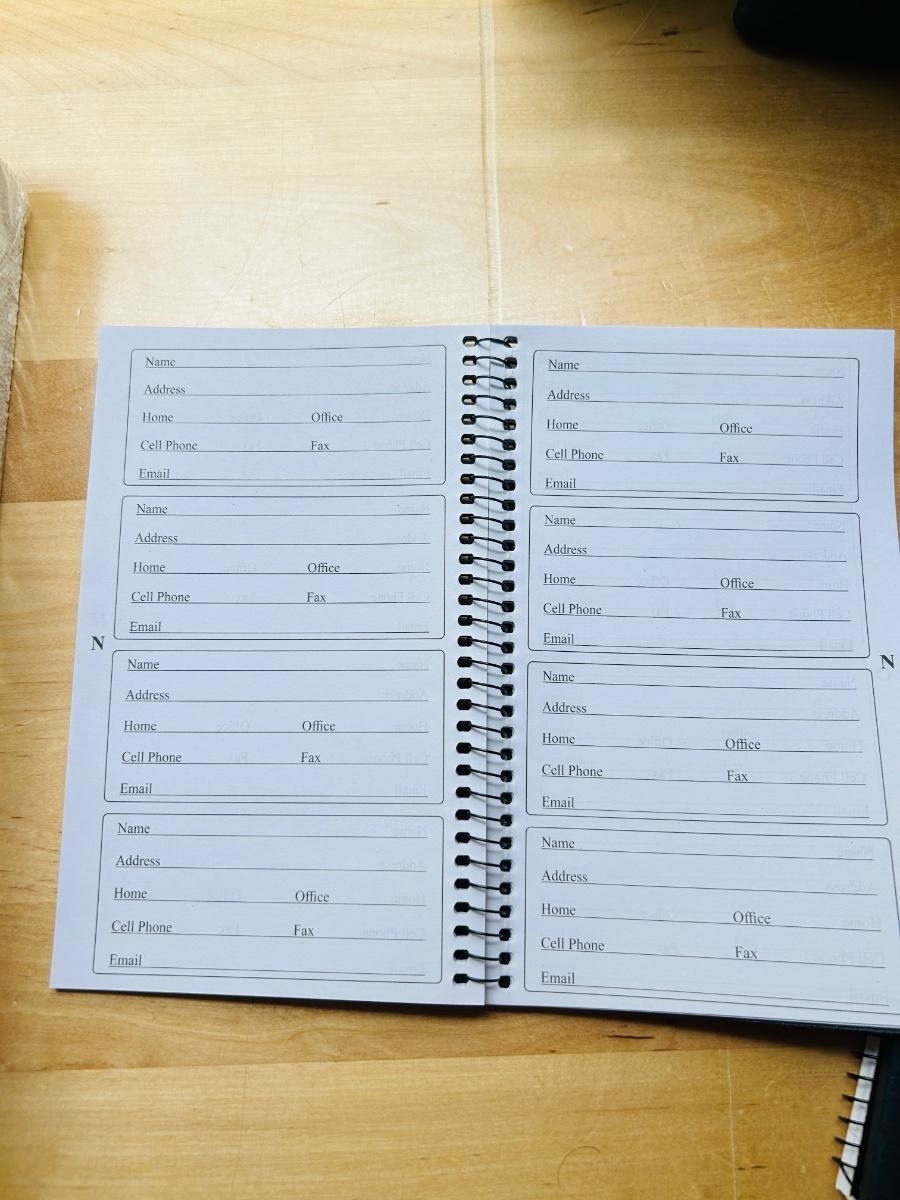 Name
Address
Home Office
Cell Phone Fax
Email
Name
Address
Home Office
Cell Phone Fax
Email
N
Name
Address
Home Office
Cell Phone Fax
Email
Name
Address
Home Office
Cell Phone Fax
Email
Name
Address
Home Office
Cell Phone Fax
Email
Name
Address
Home Office
Cell Phone Fax
Email
N
Name
Address
Home Office
Cell Phone Fax
Email
Name
Address
Home Office
Cell Phone Fax
Email